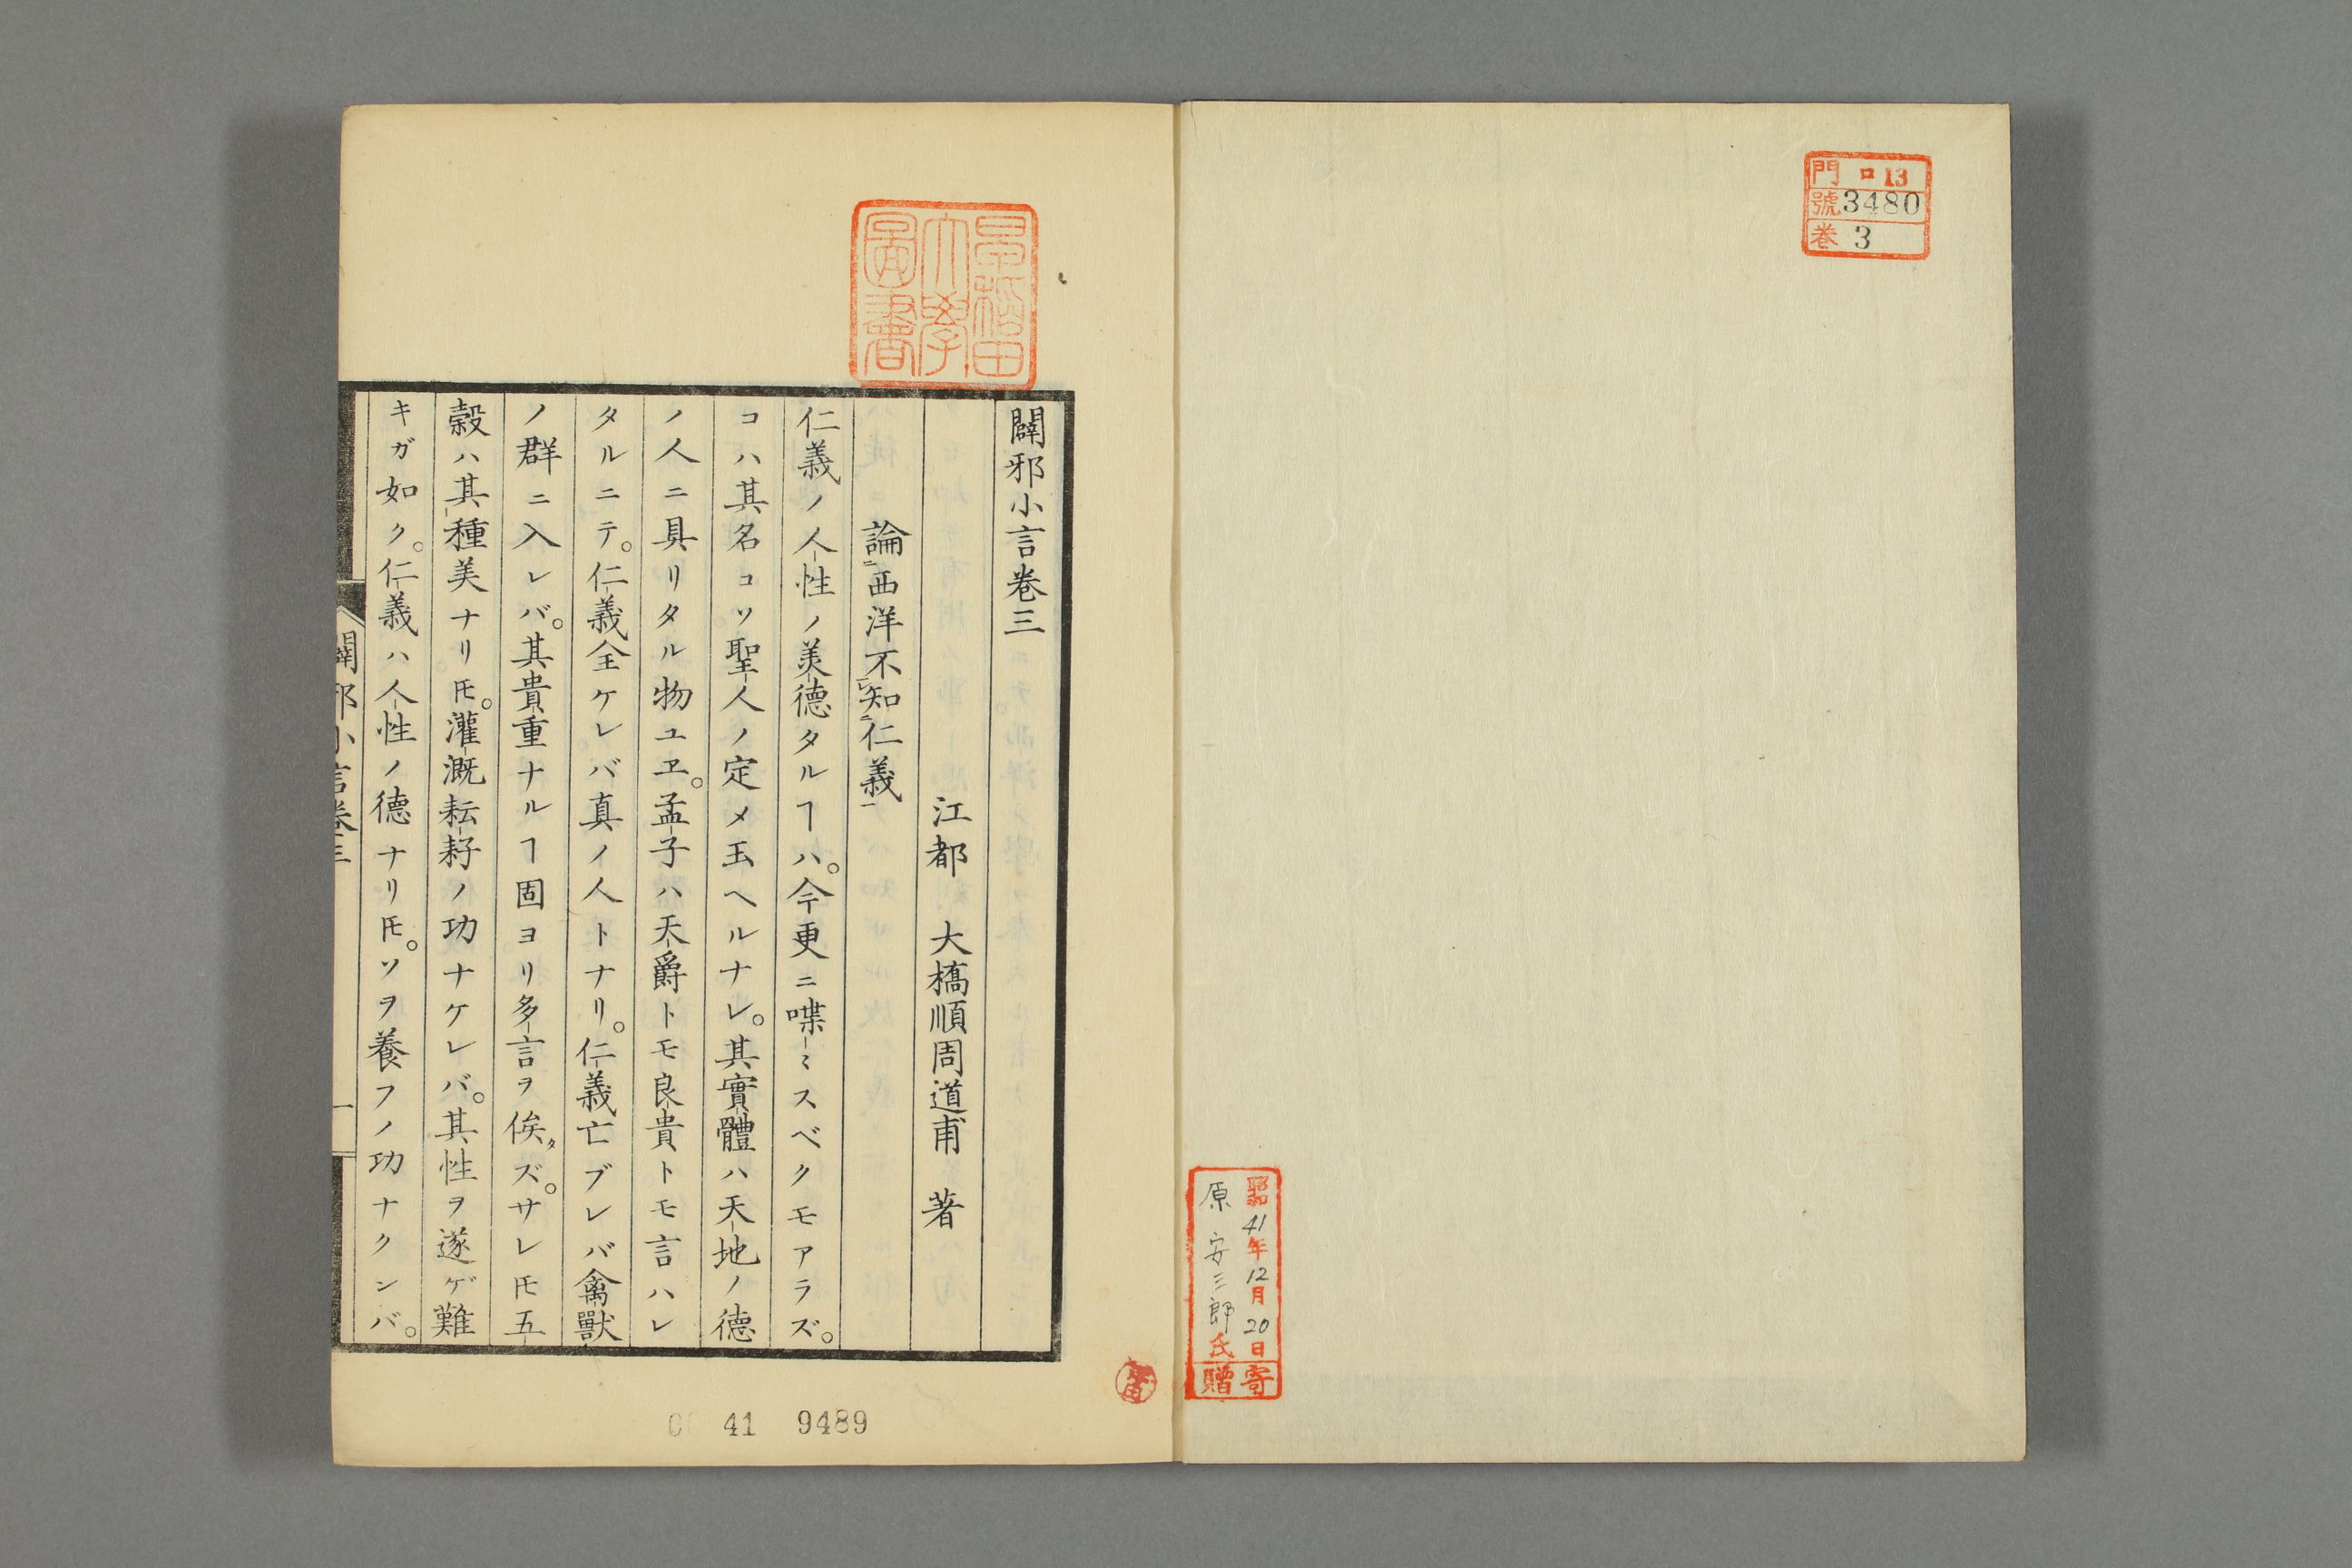 門 ロ13
號 3480
巻 3
昭和41年12月20日
原安三郎氏
寄贈
早稲田
大學
圖書
闢邪小言巻三
江都 大橋順周道甫 著
論㆓西洋不㆒㆑知㆓仁義㆒
仁義ノ人性ノ美徳タルヿハ。今更ニ喋〻スベクモアラズ。
コハ其名コソ聖人ノ定メ玉ヘルナレ。其實體ハ天地ノ德
ノ人ニ具リタル物ユヱ。孟子ハ天爵トモ良貴トモ言ハレ
タルニテ。仁義全ケレバ真ノ人トナリ。仁義亡ブレバ禽獸
ノ群ニ入レバ。其貴重ナルヿ固ヨリ多言ヲ俟タズ。サレ𪜈五
穀ハ其種美ナリ𪜈。灌漑耘耔ノ功ナケレバ。其性ヲ遂ゲ難
キガ如ク。仁義ハ人性ノ德ナリ𪜈。ソヲ養フノ功ナクンバ。
闢邪小言巻三
一
41 9489